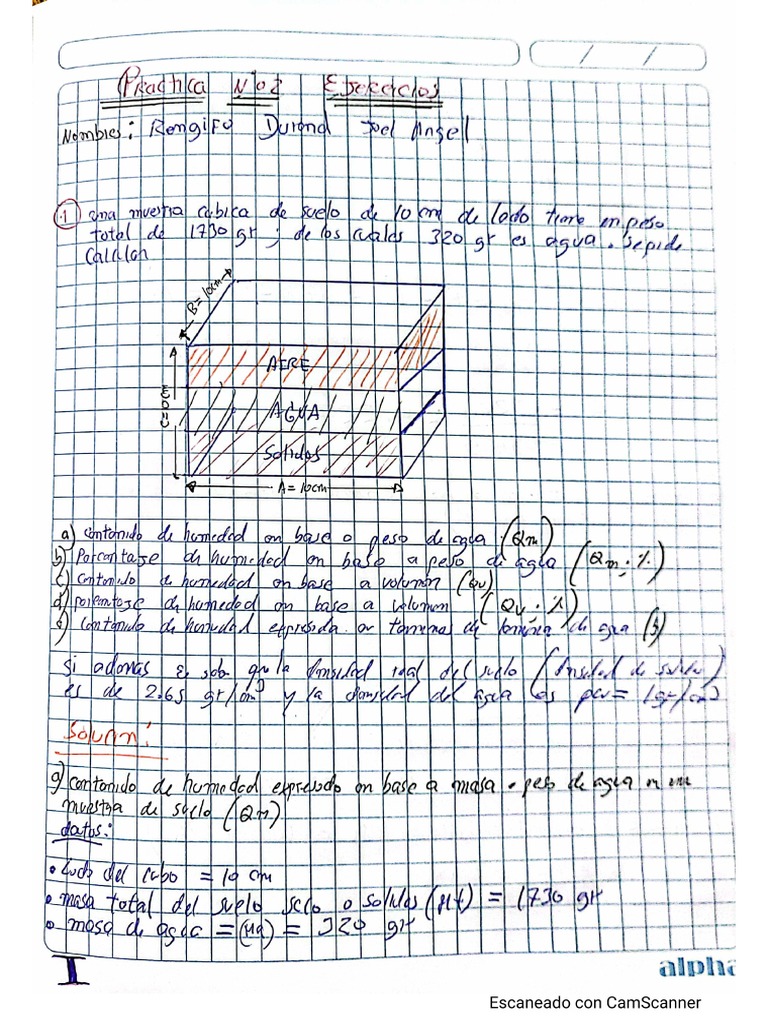 Practica Nº02 Ejercicios
Nombres: Rengifo Durand Joel Angell
1 una muestra cubica de suelo de 10 cm de lado tiene un peso
total de 1730 gr; de los cuales 320 gr es agua. se pide
Calcular
B=10cm
AIRE
AGUA
C=10cm
Solidos
A=10cm
a) contenido de humedad en base o peso de agua (Qm)
b) Porcentaje de humedad en base a peso de agua (Qm; %)
c) contenido de humedad en base a volumen (Qv)
d) porcentaje de humedad en base a volumen (Qv; %)
e) contenido de humedad expresada en terminos de lamina de agua
si ademas se sabe que la densidad real del suelo (densidad de
es de 2.65 gr/cm³ y la densidad del agua es = 1gr/cm³
Soluan:
a) contenido de humedad expresado en base a masa o peso de agua
muestra de suelo (Qm)
datos:
• Lado del cubo = 10 cm
• masa total del suelo seco o solidos (Mt) = 1730 gr
• masa de agua = (Ma) = 320 gr
I
alpha
Escaneado con CamScanner